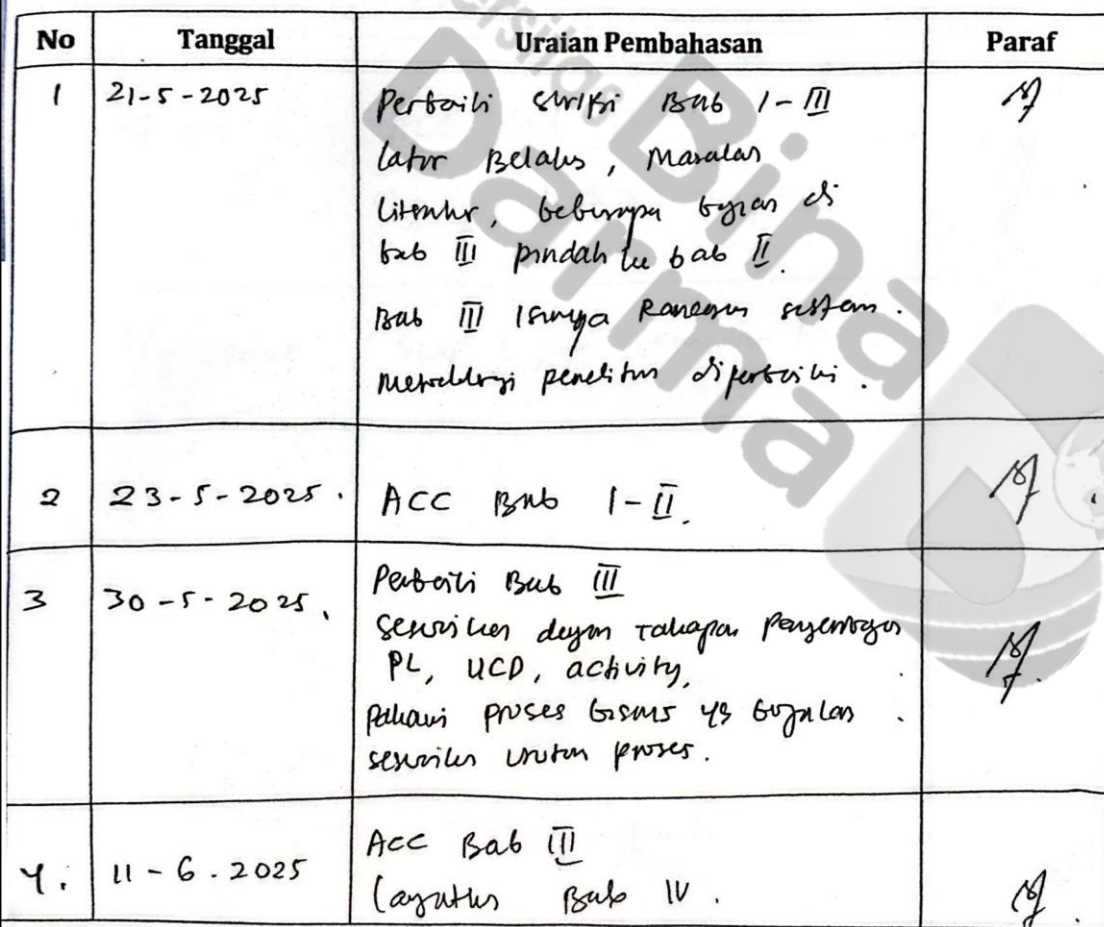 No Tanggal Uraian Pembahasan Paraf
1 21-5-2025 Perbaiki skripsi Bab I-III
Latar Belakang, Masalah
Literatur, beberapa bagian di
bab III pindah ke bab II.
Bab III isinya Rancangan sistem.
Metodologi penelitian diperbaiki.
2 23-5-2025. ACC Bab I-II.
3 30-5-2025. Perbaiki Bab III
sesuaikan dengan Tahapan Pengembangan
PL, UCD, activity,
Pahami proses bisnis yg berjalan.
sesuaikan urutan proses.
4. 11-6.2025 ACC Bab III
Lanjutkan Bab IV.
Universitas
Bina
Darma